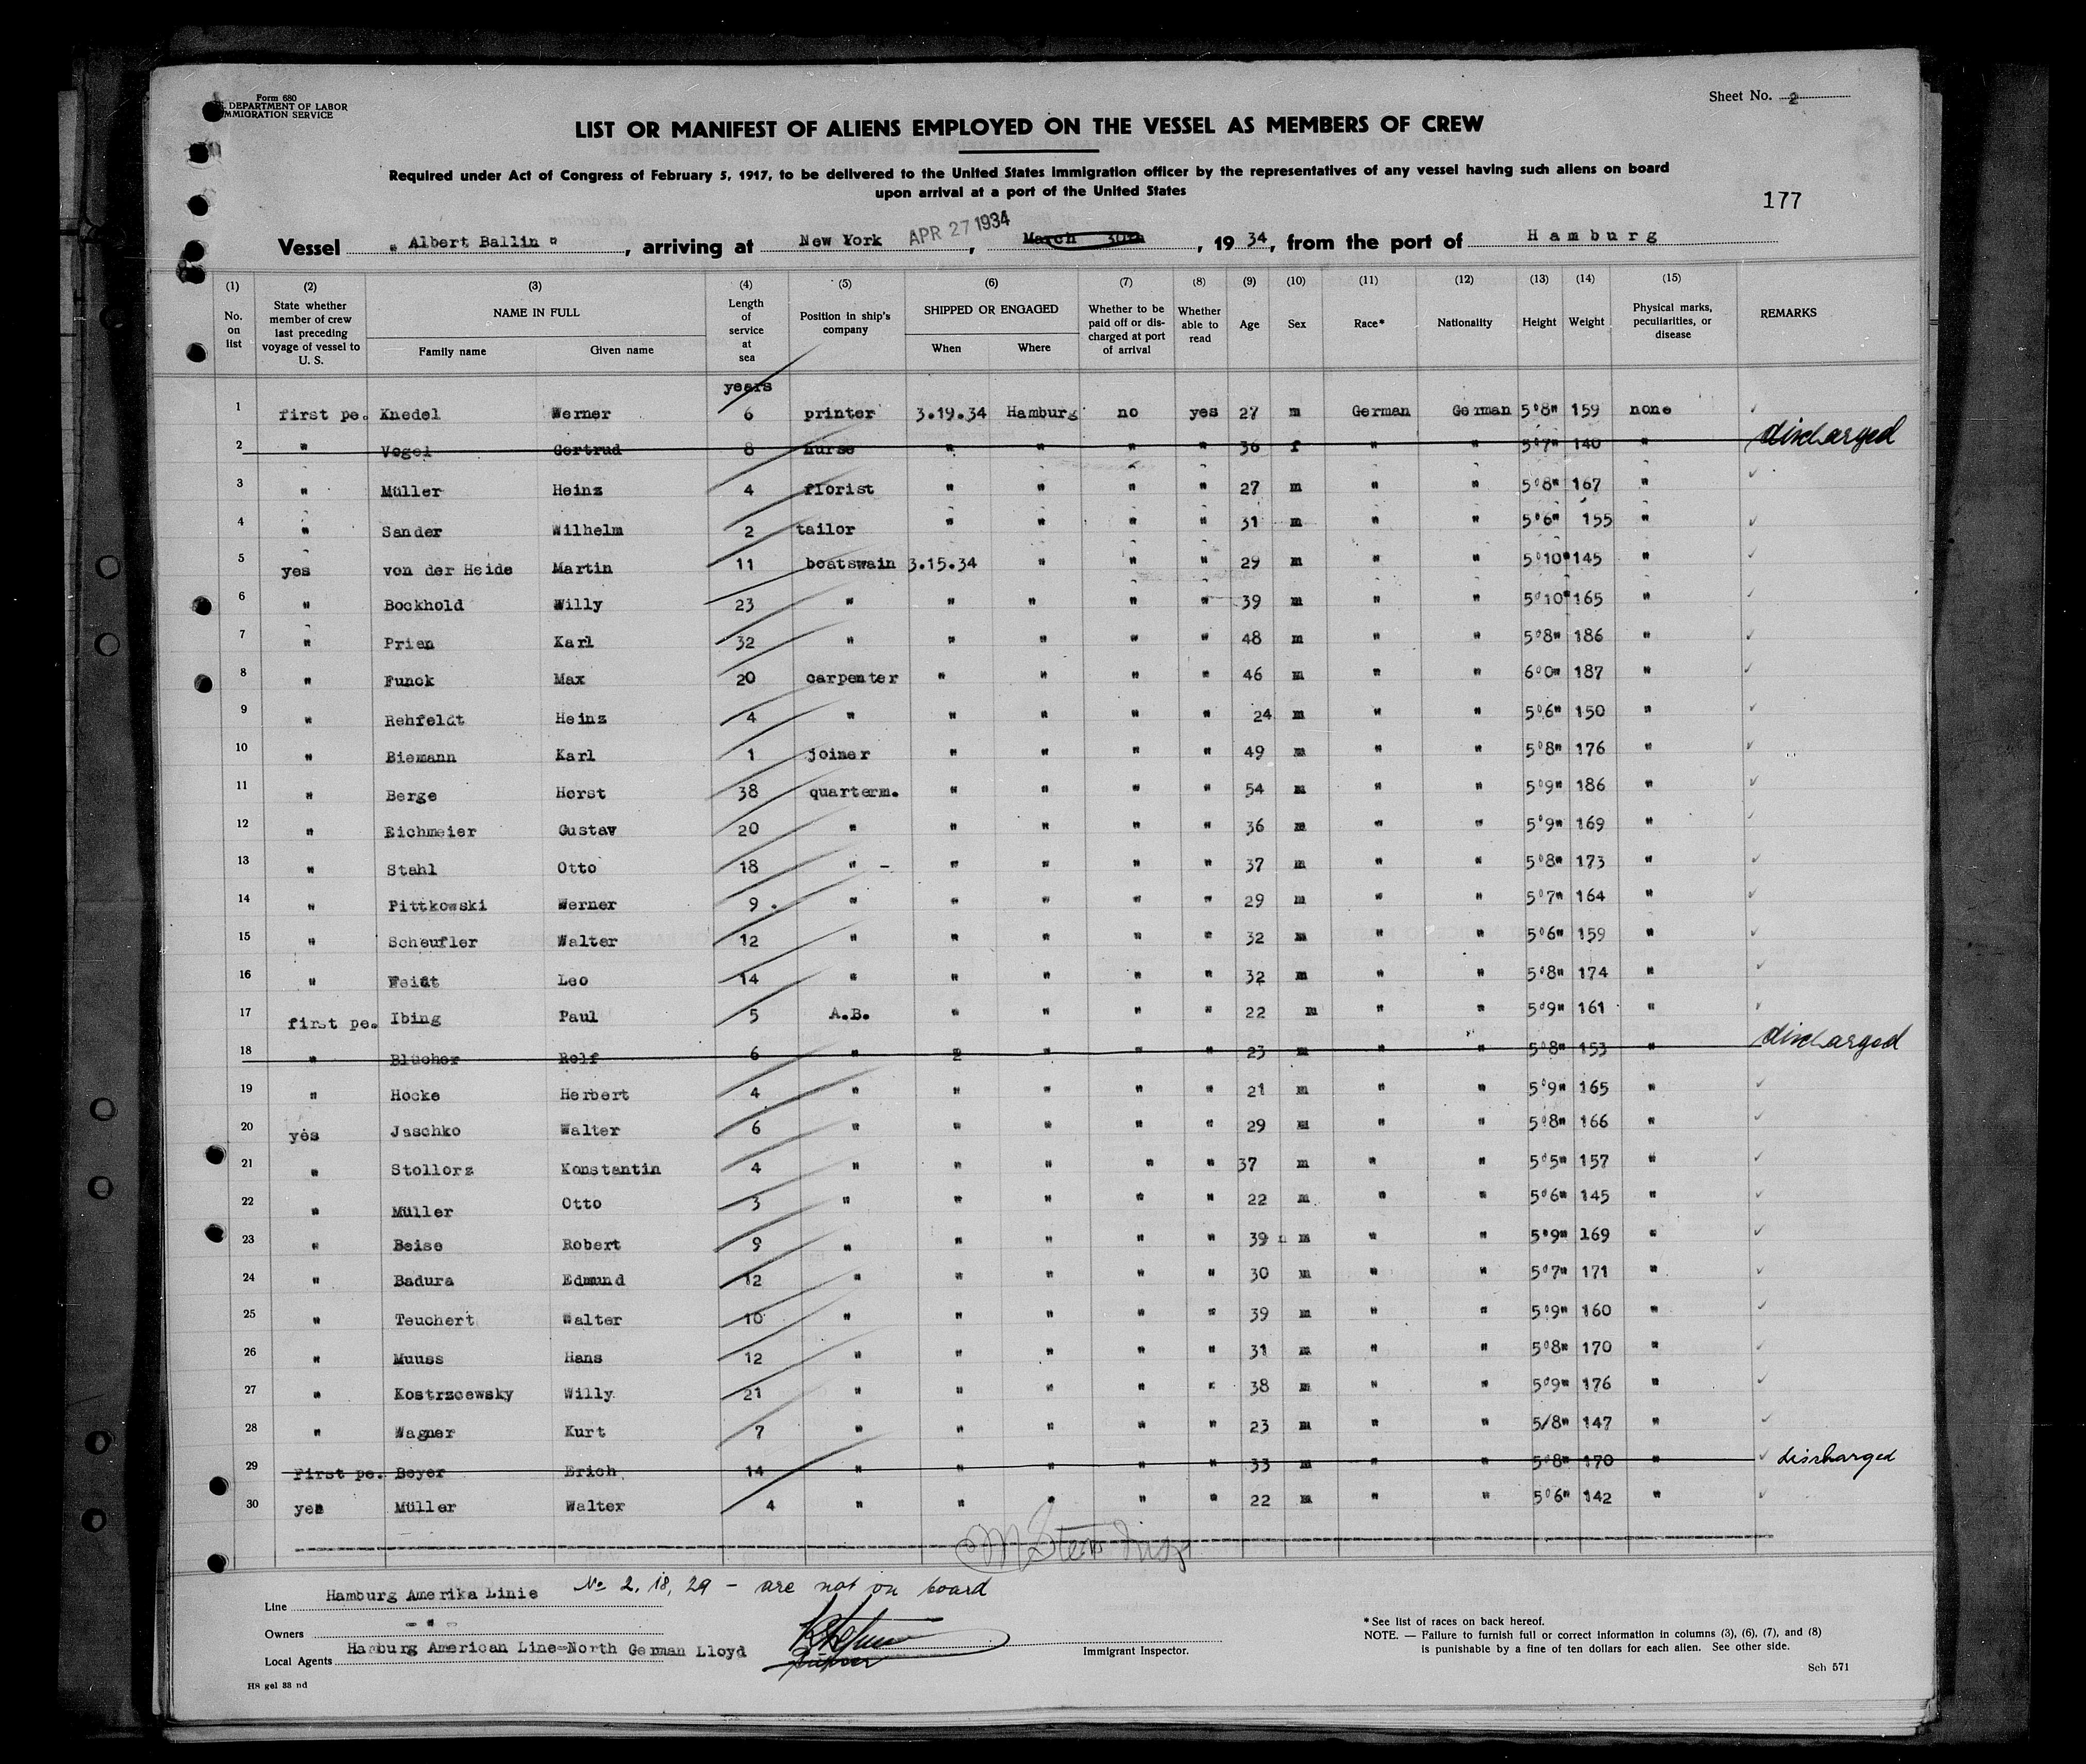 Form 680
DEPARTMENT OF LABOR
IMMIGRATION SERVICE
Sheet No. 2
LIST OR MANIFEST OF ALIENS EMPLOYED ON THE VESSEL AS MEMBERS OF CREW
Required under Act of Congress of February 5, 1917, to be delivered to the United States immigration officer by the representatives of any vessel having such aliens on board
upon arrival at a port of the United States
177
Vessel "Albert Ballin", arriving at New York APR 27 1934, March 30th, 1934, from the port of Hamburg
(1) (2) (3) (4) (5) (6) (7) (8) (9) (10) (11) (12) (13) (14) (15)
No. on list State whether member of crew last preceding voyage of vessel to U. S. NAME IN FULL Family name Given name Length of service at sea Position in ship's company SHIPPED OR ENGAGED When Where Whether to be paid off or discharged at port of arrival Whether able to read Age Sex Race* Nationality Height Weight Physical marks, peculiarities, or disease REMARKS
years
1 first pe. Knedel Werner 6 printer 3.19.34 Hamburg no yes 27 m German German 5'8" 159 none
2 " Vogel Gertrud 8 nurse " " " " 36 f " " 5'7" 140 " discharged
3 " Müller Heinz 4 florist " " " " 27 m " " 5'8" 167 "
4 " Sander Wilhelm 2 tailor " " " " 31 m " " 5'6" 155 "
5 yes von der Heide Martin 11 boatswain 3.15.34 " " " 29 m " " 5'10" 145 "
6 " Bockhold Willy 23 " " " " " 39 m " " 5'10" 165 "
7 " Prien Karl 32 " " " " " 48 m " " 5'8" 186 "
8 " Funck Max 20 carpenter " " " " 46 m " " 6'0" 187 "
9 " Rehfeldt Heinz 4 " " " " " 24 m " " 5'6" 150 "
10 " Biemann Karl 1 joiner " " " " 49 m " " 5'8" 176 "
11 " Berge Horst 38 quarterm. " " " " 54 m " " 5'9" 186 "
12 " Eichmeier Gustav 20 " " " " " 36 m " " 5'9" 169 "
13 " Stahl Otto 18 " - " " " " 37 m " " 5'8" 173 "
14 " Pittkowski Werner 9 " " " " " 29 m " " 5'7" 164 "
15 " Scheufler Walter 12 " " " " " 32 m " " 5'6" 159 "
16 " Leo 14 " " " " " 32 m " " 5'8" 174 "
17 first pe. Ibing Paul 5 A.B. " " " " 22 m " " 5'9" 161 "
18 " Blücher Rolf 6 " 2 " " " 23 m " " 5'8" 153 " discharged
19 " Hocke Herbert 4 " " " " " 21 m " " 5'9" 165 "
20 yes Jaschko Walter 6 " " " " " 29 m " " 5'8" 166 "
21 " Stollorz Konstantin 4 " " " " " 37 m " " 5'5" 157 "
22 " Müller Otto 3 " " " " " 22 m " " 5'6" 145 "
23 " Beise Robert 9 " " " " " 39 m " " 5'9" 169 "
24 " Badura Edmund 12 " " " " " 30 m " " 5'7" 171 "
25 " Teuchert Walter 10 " " " " " 39 m " " 5'9" 160 "
26 " Muuss Hans 12 " " " " " 31 m " " 5'8" 170 "
27 " Kostrzoewsky Willy 21 " " " " " 38 m " " 5'9" 176 "
28 " Wagner Kurt 7 " " " " " 23 m " " 5/8" 147 "
29 First pe. Beyer Erich 14 " " " " " 33 m " " 5'8" 170 " discharged
30 yes Müller Walter 4 " " " " " 22 m " " 5'6" 142 "
No 2, 18, 29 - are not on board
Line Hamburg Amerika Linie
Owners - " -
Local Agents Hamburg American Line-North German Lloyd
Immigrant Inspector.
* See list of races on back hereof.
NOTE. — Failure to furnish full or correct information in columns (3), (6), (7), and (8)
is punishable by a fine of ten dollars for each alien. See other side.
Sch 571
HS gel 33 nd